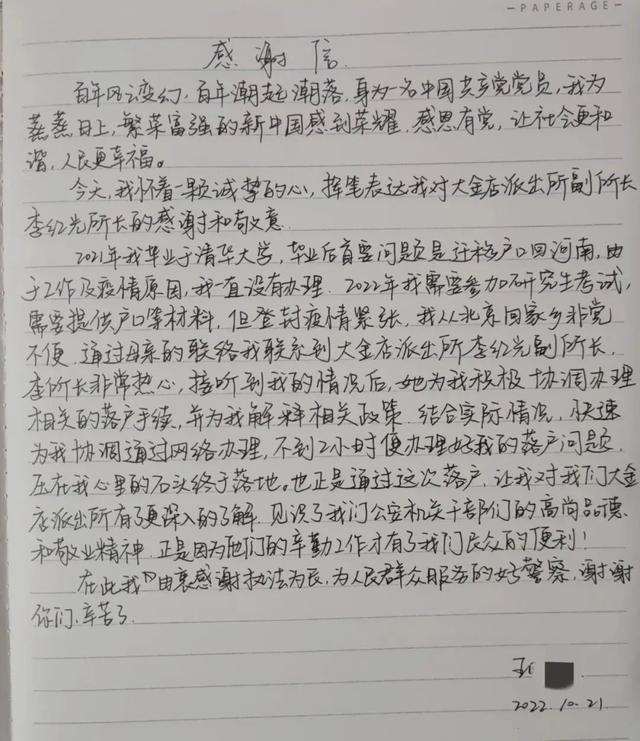 — PAPERAGE —
感谢信
百年风云变幻,百年潮起潮落,身为一名中国共产党党员,我为
蒸蒸日上,繁荣富强的新中国感到荣耀,感恩有党,让社会更和
谐,人民更幸福。
今天,我怀着一颗诚挚的心,挥笔表达我对大金店派出所副所长
李红光所长的感谢和敬意.
2021年我毕业于清华大学,毕业后首要问题是迁移户口回河南,由
于工作及疫情原因,我一直没有办理.2022年我需要参加研究生考试,
需要提供户口等材料,但登封疫情紧张,我从北京回家乡非常
不便.通过母亲的联络我联系到大金店派出所李红光副所长,
李所长非常热心,接听到我的情况后,她为我积极协调办理
相关的落户手续,并为我解释相关政策.结合实际情况,快速
为我协调通过网络办理,不到2小时便办理好我的落户问题.
压在我心里的石头终于落地。也正是通过这次落户,让我对我们大金
店派出所有了更深入的了解.见识了我们公安机关干部们的高尚品德.
和敬业精神.正是因为他们的辛勤工作才有了我们民众的便利!
在此我由衷感谢执法为民,为人民群众服务的好警察,谢谢
你们,辛苦了.
2022.10.21